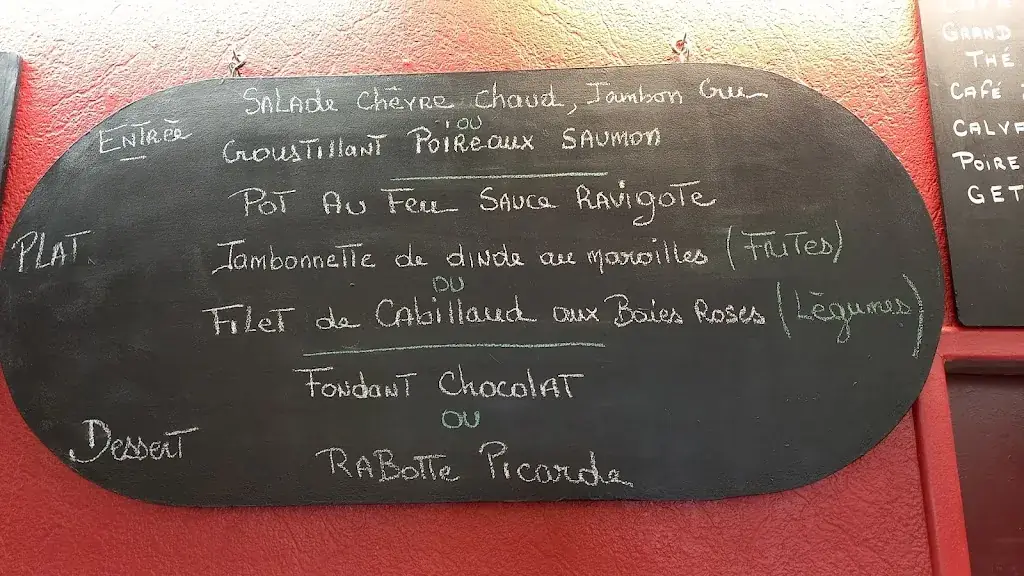 Salade Chèvre chaud, Jambon Cru
ENTRée
OU
Croustillant Poireaux Saumon
Pot Au Feu Sauce Ravigote
PLAT
Jambonnette de dinde au maroilles (Frites)
OU
Filet de Cabillaud aux Baies Roses (Légumes)
Fondant Chocolat
OU
Dessert
Rabotte Picarde
GRAND
THÉ
CAFÉ
CALVA
POIRE
GET